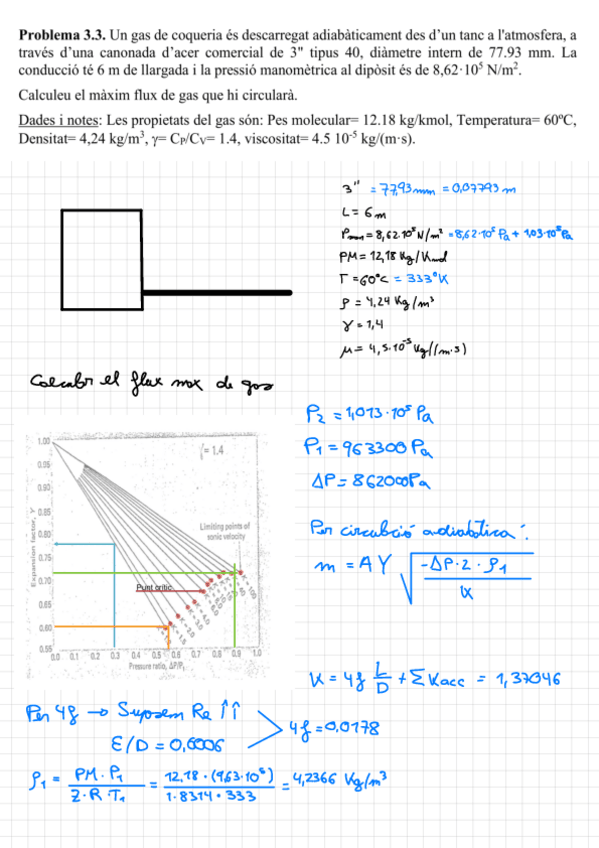 Problema 3.3. Un gas de coqueria és descarregat adiabàticament des d'un tanc a l'atmosfera, a
través d'una canonada d'acer comercial de 3" tipus 40, diàmetre intern de 77.93 mm. La
conducció té 6 m de llargada i la pressió manomètrica al dipòsit és de 8,62·10⁵ N/m².
Calculeu el màxim flux de gas que hi circularà.
Dades i notes: Les propietats del gas són: Pes molecular= 12.18 kg/kmol, Temperatura= 60ºC,
Densitat= 4,24 kg/m³, γ= CP/CV= 1.4, viscositat= 4.5 10⁻⁵ kg/(m·s).
3" = 77,93 mm = 0,07793 m
L = 6 m
Pman = 8,62·10⁵ N/m² = 8,62·10⁵ Pa + 1,03·10⁵ Pa
PM = 12,18 Kg/Kmol
T = 60°C = 333°K
ρ = 4,24 Kg/m³
γ = 1,4
μ = 4,5·10⁻⁵ Kg/(m·s)
Calcular el flux max de gas
P₂ = 1,013·10⁵ Pa
P₁ = 963300 Pa
ΔP = 862000 Pa
Per circulació adiabàtica:
m = A Y √(-ΔP·2·ρ₁ / K)
= 1.4
Limiting points of
sonic velocity
Punt crític
Expansion factor, Y
1.00
0.95
0.90
0.85
0.80
0.75
0.70
0.65
0.60
0.55
0.0 0.1 0.2 0.3 0.4 0.5 0.6 0.7 0.8 0.9 1.0
Pressure ratio, ΔP/P₁
K = 4f L/D + ΣKacc = 1,37046
Per 4f → Suposem Re ↑↑
ε/D = 0,0006
4f = 0,0178
ρ₁ = PM·P₁ / Z·R·T₁ = 12,18·(9,63·10⁵) / 1·8314·333 = 4,2366 Kg/m³